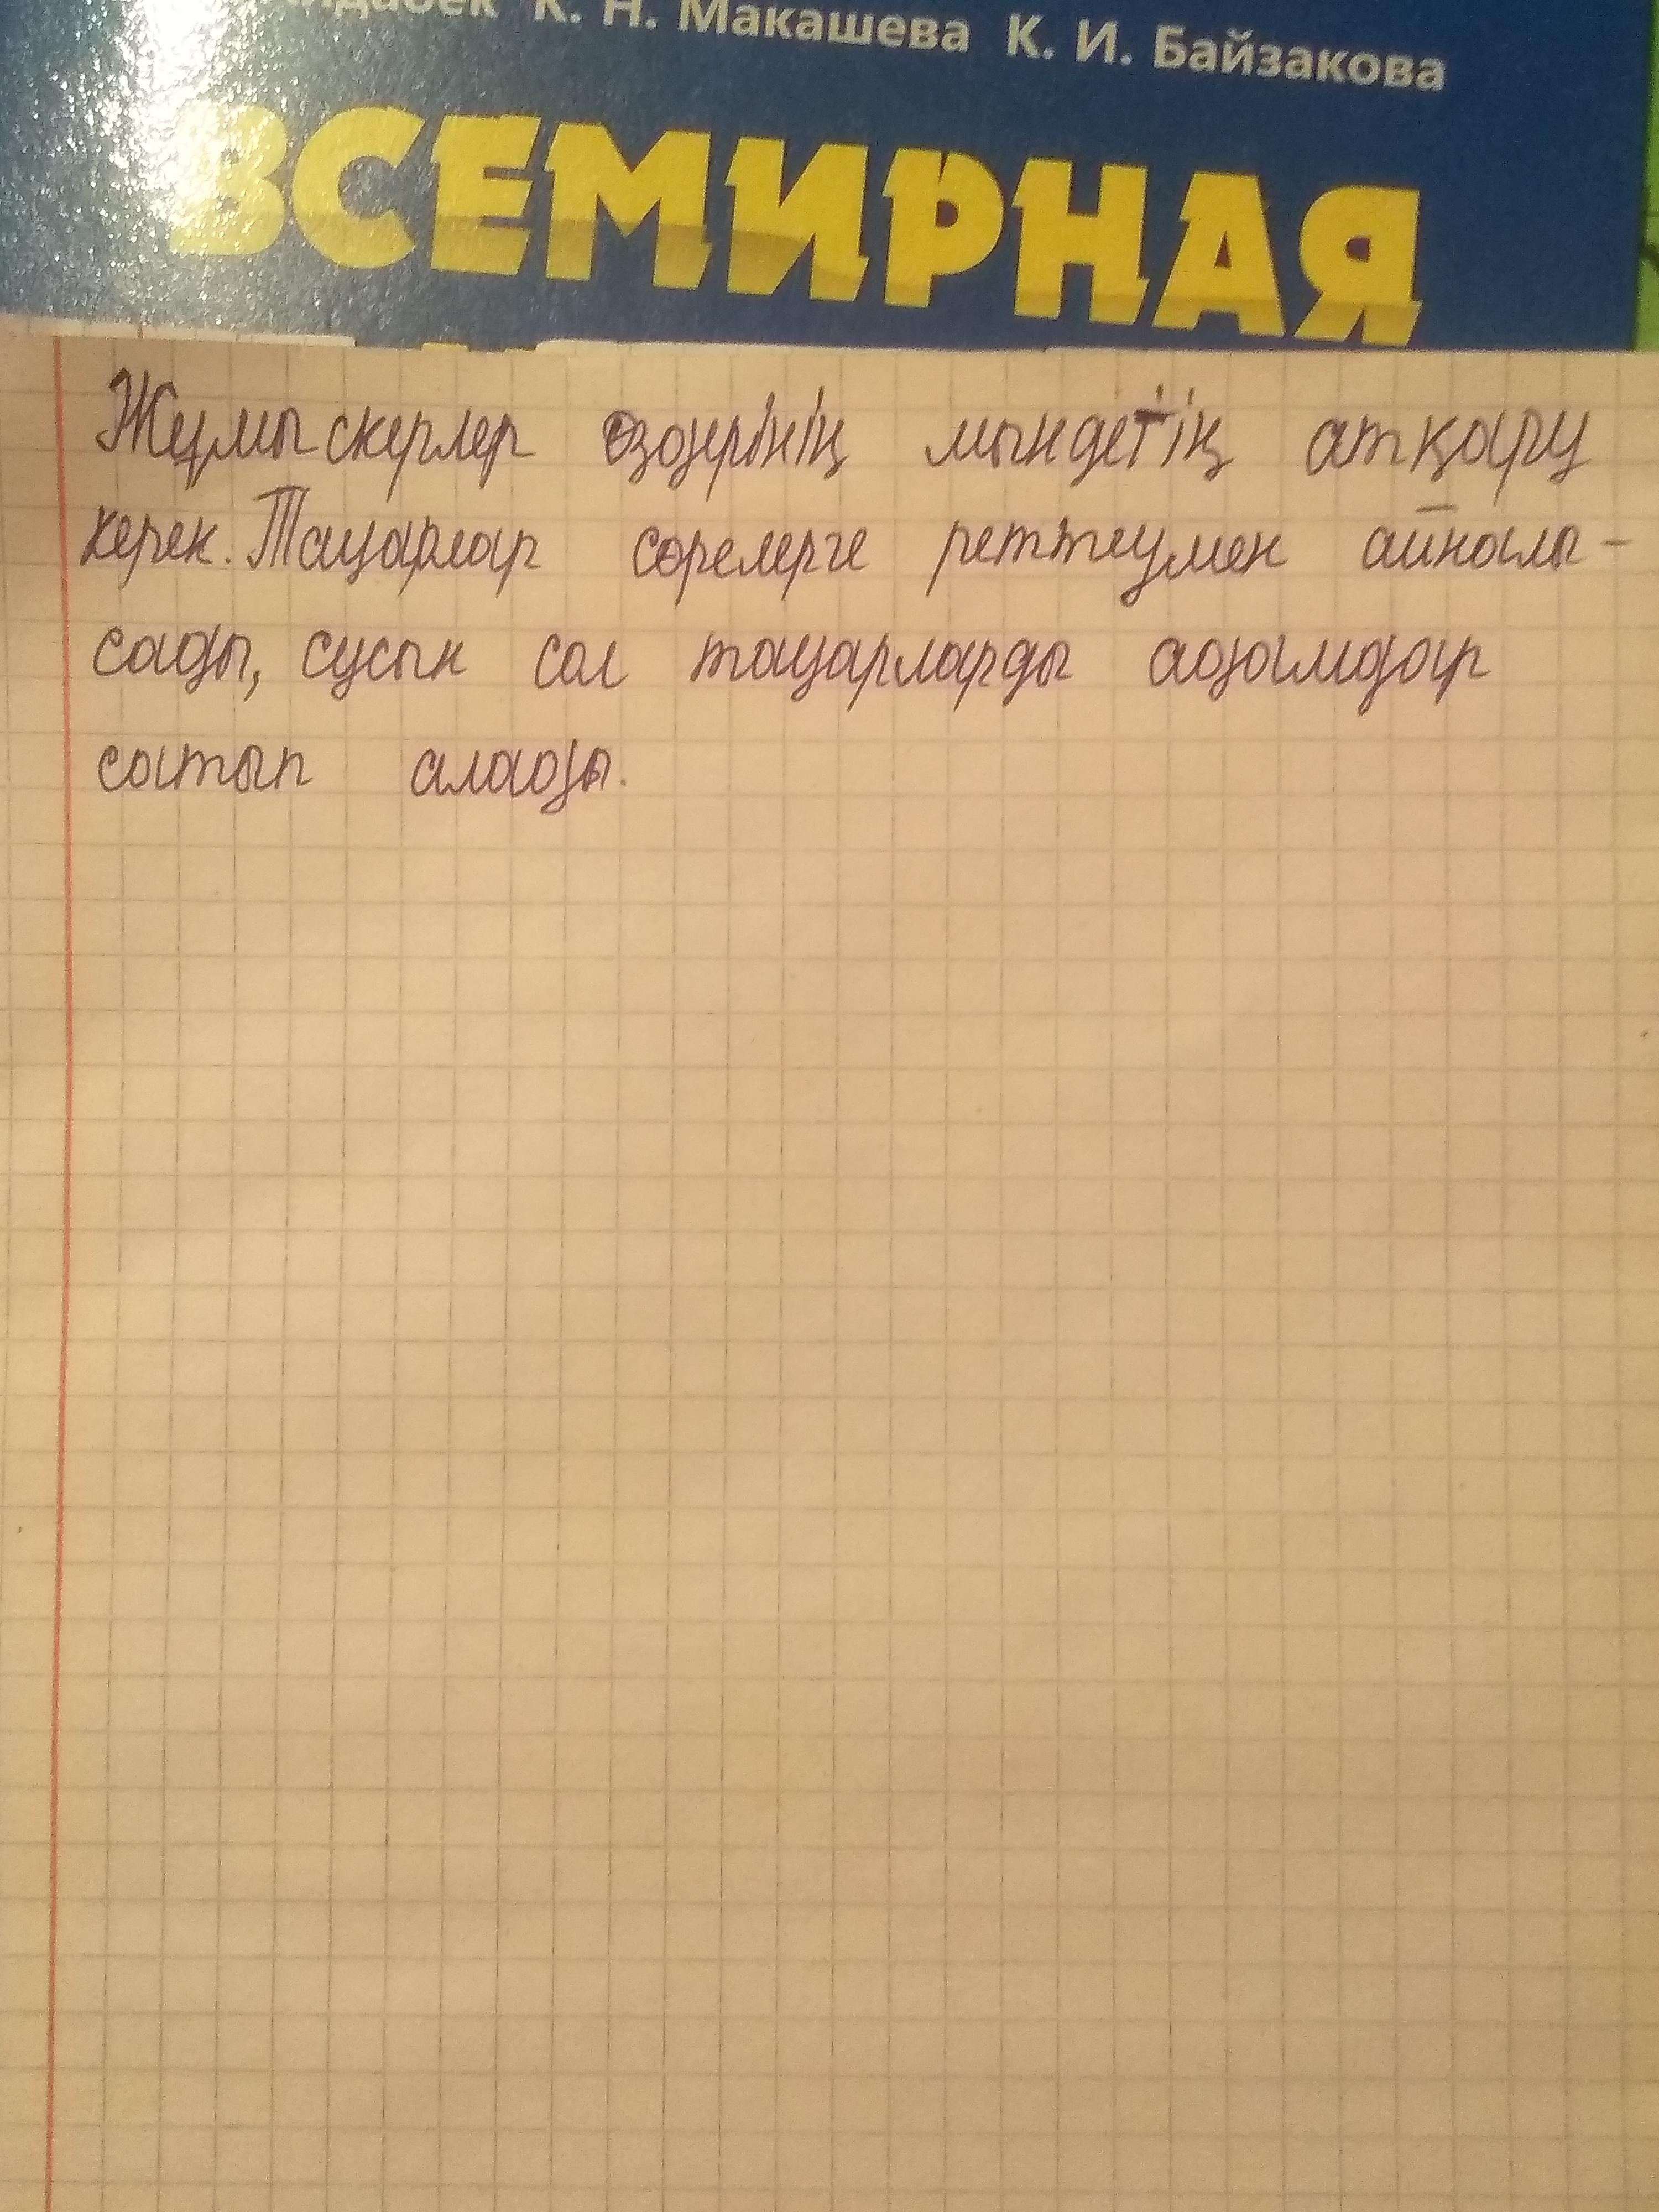 К. Н. Макашева К. И. Байзакова
ВСЕМИРНАЯ
Жұмыскерлер өздерінің мындетің атқару
керек. Тауарлар сөрелерге реттеумен айналы-
сады, сусын сол тауарларды адамдар
сатып алады.